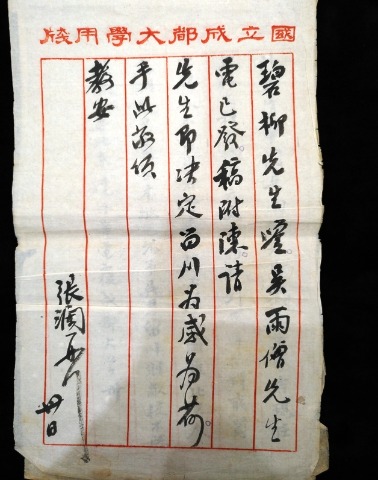 國立成都大學用牋
碧柳先生鑒吳雨僧先生
電已發。稿附陳請
先生即決定留川為感為荷。
手此敬頌
教安
張瀾
日